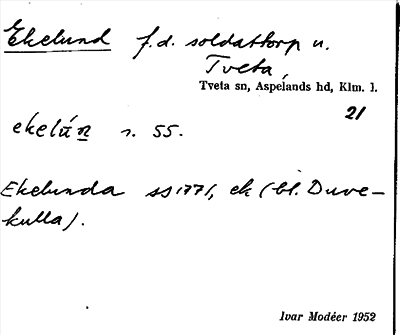 Ekelund f.d. soldattorp u.
Tveta,
Tveta sn, Aspelands hd, Klm. l.
21
ekelún s. 55.
Ekelunda ss 1771, ek (bl. Duve-
kulla).
Ivar Modéer 1952